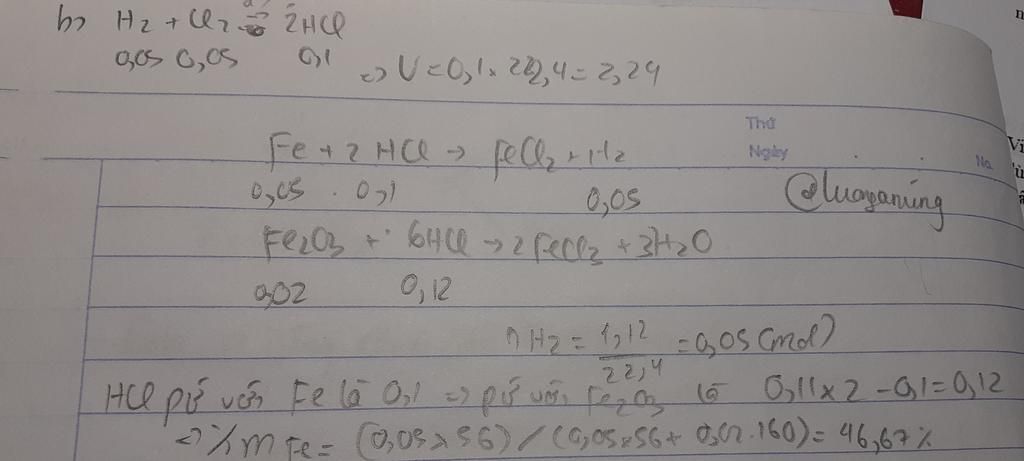 b) H2 + Cl2 → 2HCl
0,05 0,05 0,1 => V = 0,1 × 22,4 = 2,24
Thứ
Ngày
No.
Fe + 2 HCl → FeCl2 + H2
0,05 . 0,1 0,05
@luongamung
Fe2O3 + 6HCl → 2FeCl3 + 3H2O
0,02 0,12
nH2 = 1,12/22,4 = 0,05 (mol)
HCl pứ với Fe là 0,1 => pứ với Fe2O3 là 0,11×2 - 0,1 = 0,12
=> %mFe = (0,05×56) / (0,05×56 + 0,02.160) = 46,67%